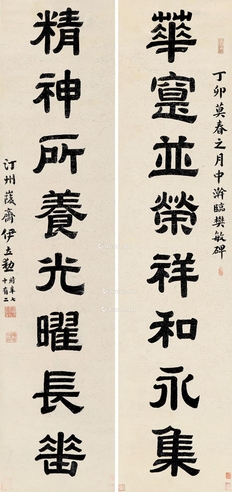 華寔並榮祥和永集
丁卯莫春之月中澣臨樊敏碑
精神所養光曜長
汀州峻齋伊立勳時年七十有二